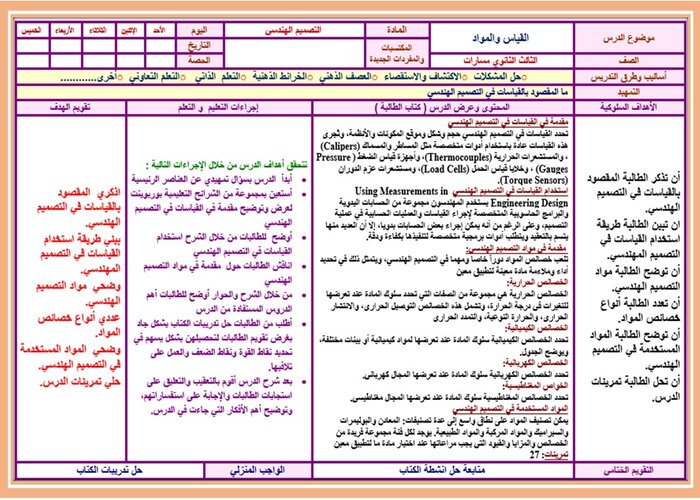 موضوع الدرس
القياس والمواد
المادة
التصميم الهندسي
اليوم
الأحد
الإثنين
الثلاثاء
الأربعاء
الخميس
الصف
الثالث الثانوي مسارات
المكتسبات والمفردات الجديدة
التاريخ
الحصة
أساليب وطرق التدريس
○حل المشكلات ○الاكتشاف والاستقصاء ○العصف الذهني ○الخرائط الذهنية ○التعلم الذاتي ○التعلم التعاوني ○أخرى............
التمهيد
ما المقصود بالقياسات في التصميم الهندسي
الأهداف السلوكية
المحتوى وعرض الدرس ( كتاب الطالبة )
إجراءات التعليم و التعلم
تقويم الهدف
أن تذكر الطالبة المقصود
بالقياسات في التصميم
الهندسي.
ان تبين الطالبة طريقة
استخدام القياسات في
التصميم المهندسي.
أن توضح الطالبة مواد
التصميم الهندسي.
أن تعدد الطالبة أنواع
خصائص المواد.
أن توضح الطالبة المواد
المستخدمة في التصميم
الهندسي.
أن تحل الطالبة تمرينات
الدرس.
مقدمة في القياسات في التصميم الهندسي
تحدد القياسات في التصميم الهندسي حجم وشكل وموقع المكونات والأنظمة، وتجرى
هذه القياسات عادة باستخدام أدوات متخصصة مثل المساطر والمسماك (Calipers)
، والمستشعرات الحرارية (Thermocouples)، وأجهزة قياس الضغط (Pressure
Gauges) ، وخلايا قياس الحمل (Load Cells) ، ومستشعرات عزم الدوران
(Torque Sensors)
استخدام القياسات في التصميم الهندسي Using Measurements in
Engineering Design يستخدم المهندسون مجموعة من الحسابات اليدوية
والبرامج الحاسوبية المتخصصة لإجراء القياسات والعمليات الحسابية في عملية
التصميم، وعلى الرغم من أنه يمكن إجراء بعض الحسابات يدويا، إلا أن العديد منها
يتسم بالتعقيد ويتطلب أدوات برمجية متخصصة لتنفيذها بكفاءة ودقة.
مقدمة في مواد التصميم الهندسي:
تلعب خصائص المواد دورا خاصا ومهما في التصميم الهندسي، ويتمثل ذلك في تحديد
أداء وملاءمة مادة معينة لتطبيق معين
الخصائص الحرارية:
الخصائص الحرارية هي مجموعة من الصفات التي تحدد سلوك المادة عند تعرضها
للتغيرات في درجة الحرارة، وتشمل هذه الخصائص التوصيل الحراري، والانتشار
الحراري، والحرارة النوعية، والتمدد الحراري
الخصائص الكيميائية:
تحدد الخصائص الكيميائية سلوك المادة عند تعرضها لمواد كيميائية أو بيئات مختلفة،
ويوضح الجدول.
الخصائص الكهربائية:
تحدد الخصائص الكهربائية سلوك المادة عند تعرضها المجال كهربائي.
الخواص المغناطيسية:
تحدد الخصائص المغناطيسية سلوك المادة عند تعرضها لمجال مغناطيسي.
المواد المستخدمة في التصميم الهندسي
يمكن تصنيف المواد على نطاق واسع إلى عدة تصنيفات: المعادن والبوليمرات
والسيراميك والمواد المركبة والمواد الطبيعية. يوجد لكل فئة مجموعة فريدة من
الخصائص والمزايا والقيود التي يجب مراعاتها عند اختيار مادة ما لتطبيق معين
تمرينات: 27
تتحقق أهداف الدرس من خلال الإجراءات التالية :
• أبدأ الدرس بسؤال تمهيدي عن العناصر الرئيسية
• أستعين بمجموعة من الشرائح التعليمية بوربوينت
لعرض وتوضيح مقدمة في القياسات في التصميم
الهندسي
• أوضح للطالبات من خلال الشرح استخدام
القياسات في التصميم الهندسي
• اناقش الطالبات حول مقدمة في مواد التصميم
الهندسي
• من خلال الشرح والحوار أوضح للطالبات أهم
الدروس المستفادة من الدرس
• أطلب من الطالبات حل تدريبات الكتاب بشكل جاد
بغرض تقويم الطالبات لتحصيلهن بشكل يسهم في
تحديد نقاط القوة ونقاط الضعف والعمل على
تلافيها.
• بعد شرح الدرس أقوم بالتعقيب والتعليق على
استجابات الطالبات والإجابة على استفساراتهم،
وتوضيح أهم الأفكار التي جاءت في الدرس.
اذكري المقصود
بالقياسات في التصميم
الهندسي.
بيني طريقة استخدام
القياسات في التصميم
المهندسي.
وضحي مواد التصميم
الهندسي.
عددي أنواع خصائص
المواد.
وضحي المواد المستخدمة
في التصميم الهندسي.
حلي تمرينات الدرس.
التقويم الختامي
متابعة حل انشطة الكتاب
الواجب المنزلي
حل تدريبات الكتاب